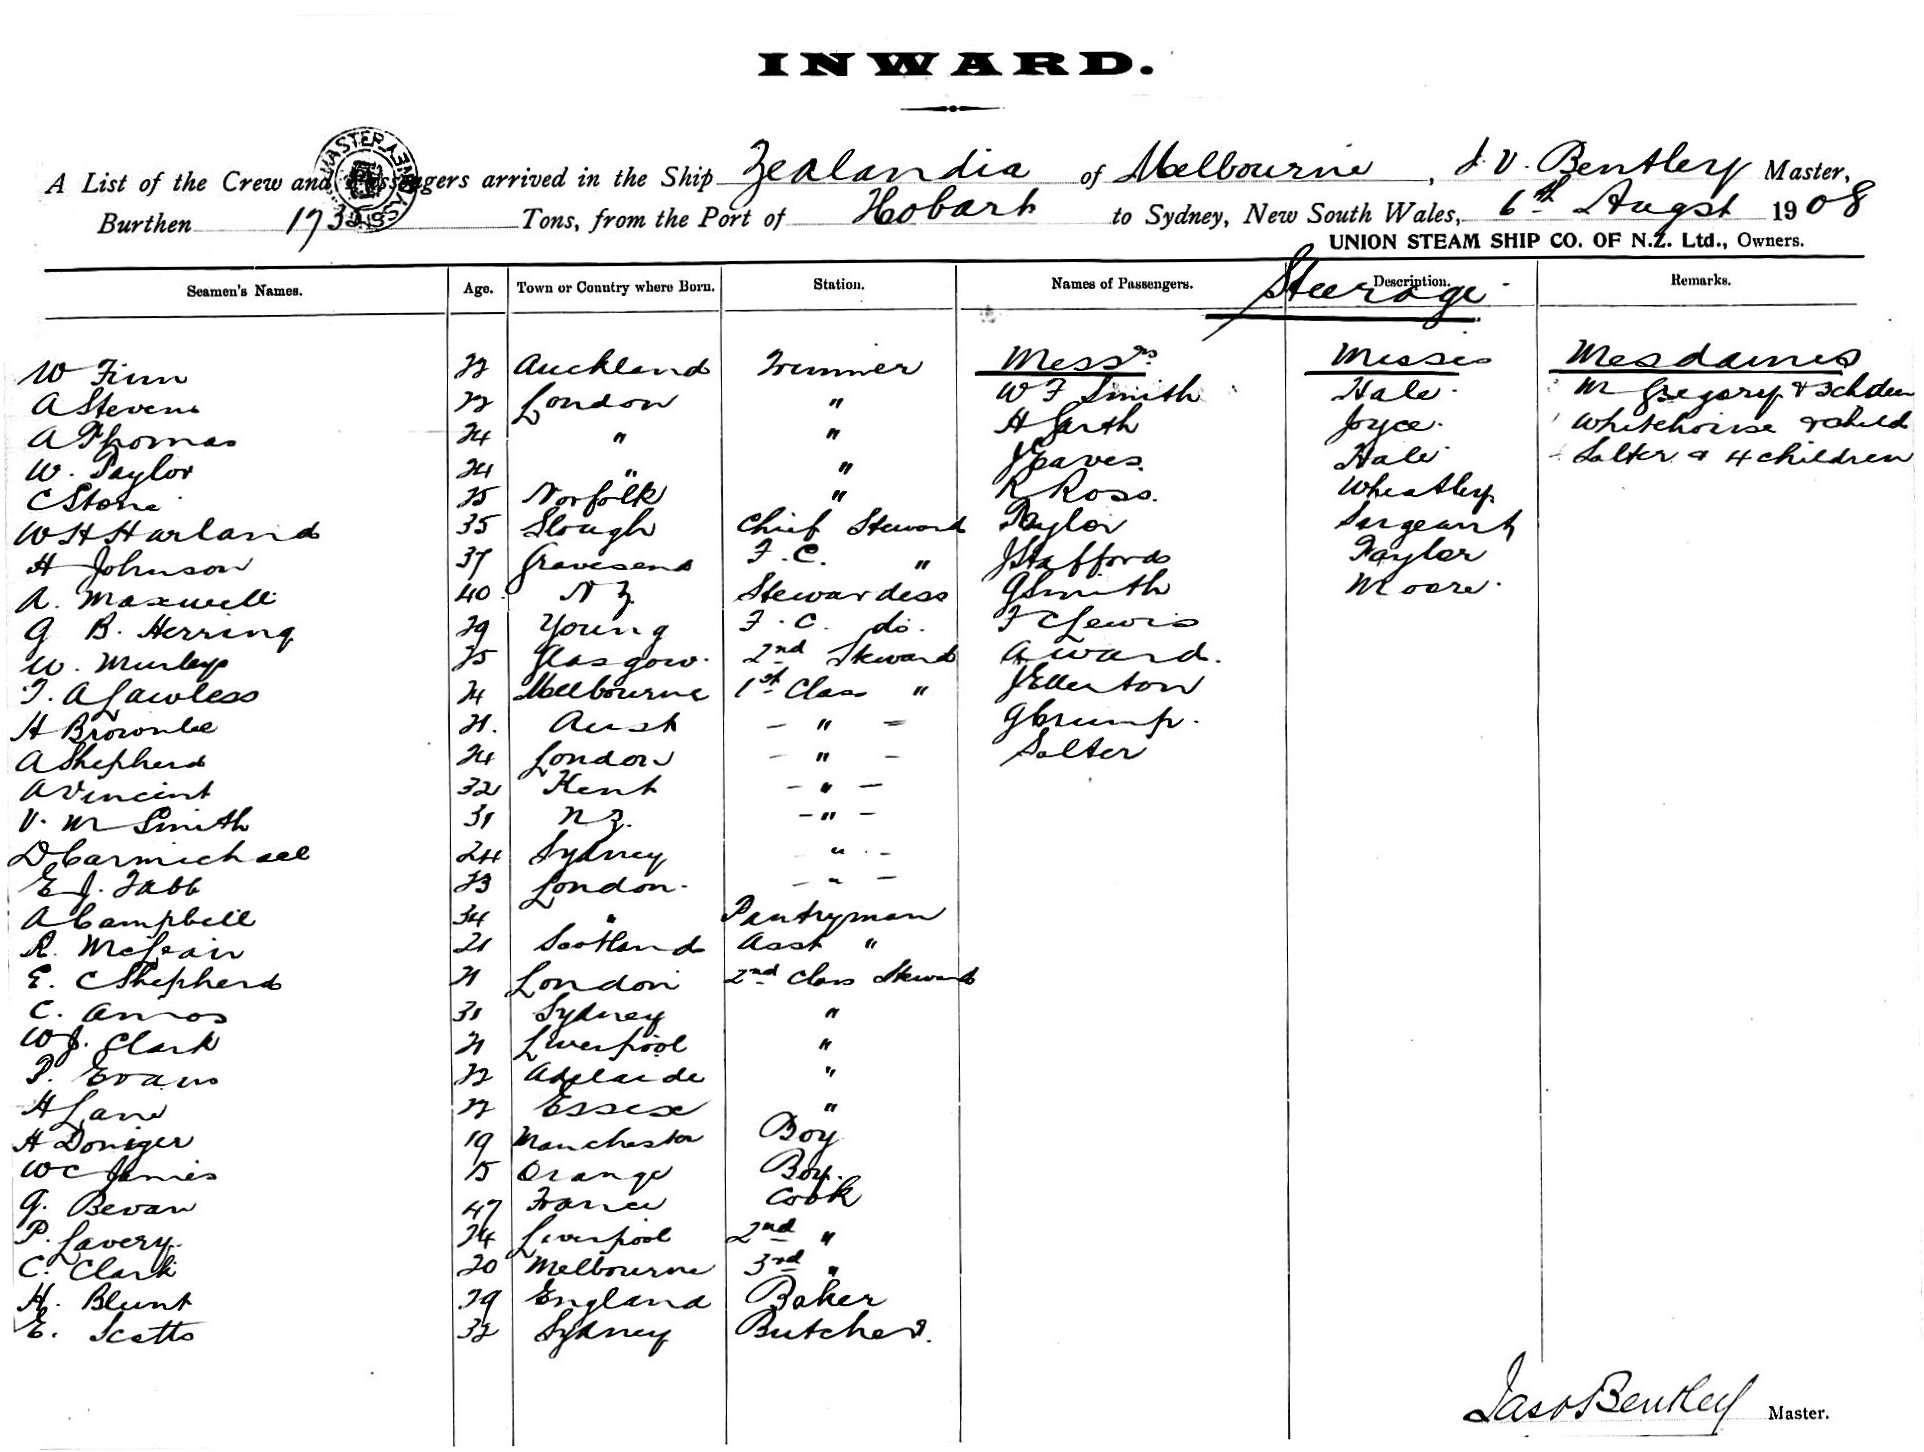 INWARD.
A List of the Crew and Passengers arrived in the Ship Zealandia of Melbourne, J. V. Bentley Master,
Burthen Tons, from the Port of Hobart to Sydney, New South Wales, 6th Augst 1908
UNION STEAM SHIP CO. OF N.Z. Ltd., Owners.
Seamen's Names. Age. Town or Country where Born. Station. Names of Passengers. Description. Remarks.
Steerage
W Finn 22 Auckland Trimmer Messrs Misses Mesdames
A Stevens 22 London " W F Smith Hale. M Gregory &
A Thomas 24 " " H Garth Joyce. Whitehouse & child
W. Taylor 24 " " J Eaves. Hale Salter & 4 children
C Stone 25 Norfolk " R Ross. Wheatley
W H Harland 35 Slough Chief Steward Taylor Sargeant
H Johnson 37 Gravesend F. C. " J Stafford Taylor
A. Maxwell 40. N Z. Stewardess G Smith Moore.
G B. Herring 29 Young F. C. do. F C Lewis
W. Murley 25 Glasgow. 2nd Steward A Ward.
T. A Lawless 24 Melbourne 1st Class " J Ellerton
H Brownlee 21. Aust – " – G Crump.
A Shepherd 24 London – " – Salter
A Vincent 32 Kent – " –
V. M Smith 31 N Z. – " –
D Carmichael 24 Sydney " -
E J. Tabb 23 London. – " –
A Campbell 34 " Pantryman
R. McLean 21 Scotland Asst "
E. C Shepherd 21 London 2nd Class Steward
C. Amos 31 Sydney "
W J. Clark 21 Liverpool "
P. Evans 22 Adelaide "
H Lane 22 Essex "
H Doniger 19 Manchester Boy
W C James 15 Orange Boy.
G. Bevan 47 France Cook
P. Lavery. 24 Liverpool 2nd "
C. Clark 20 Melbourne 3rd "
H. Blunt 29 England Baker
E. Scotts 32 Sydney Butcher.
Bentley Master.